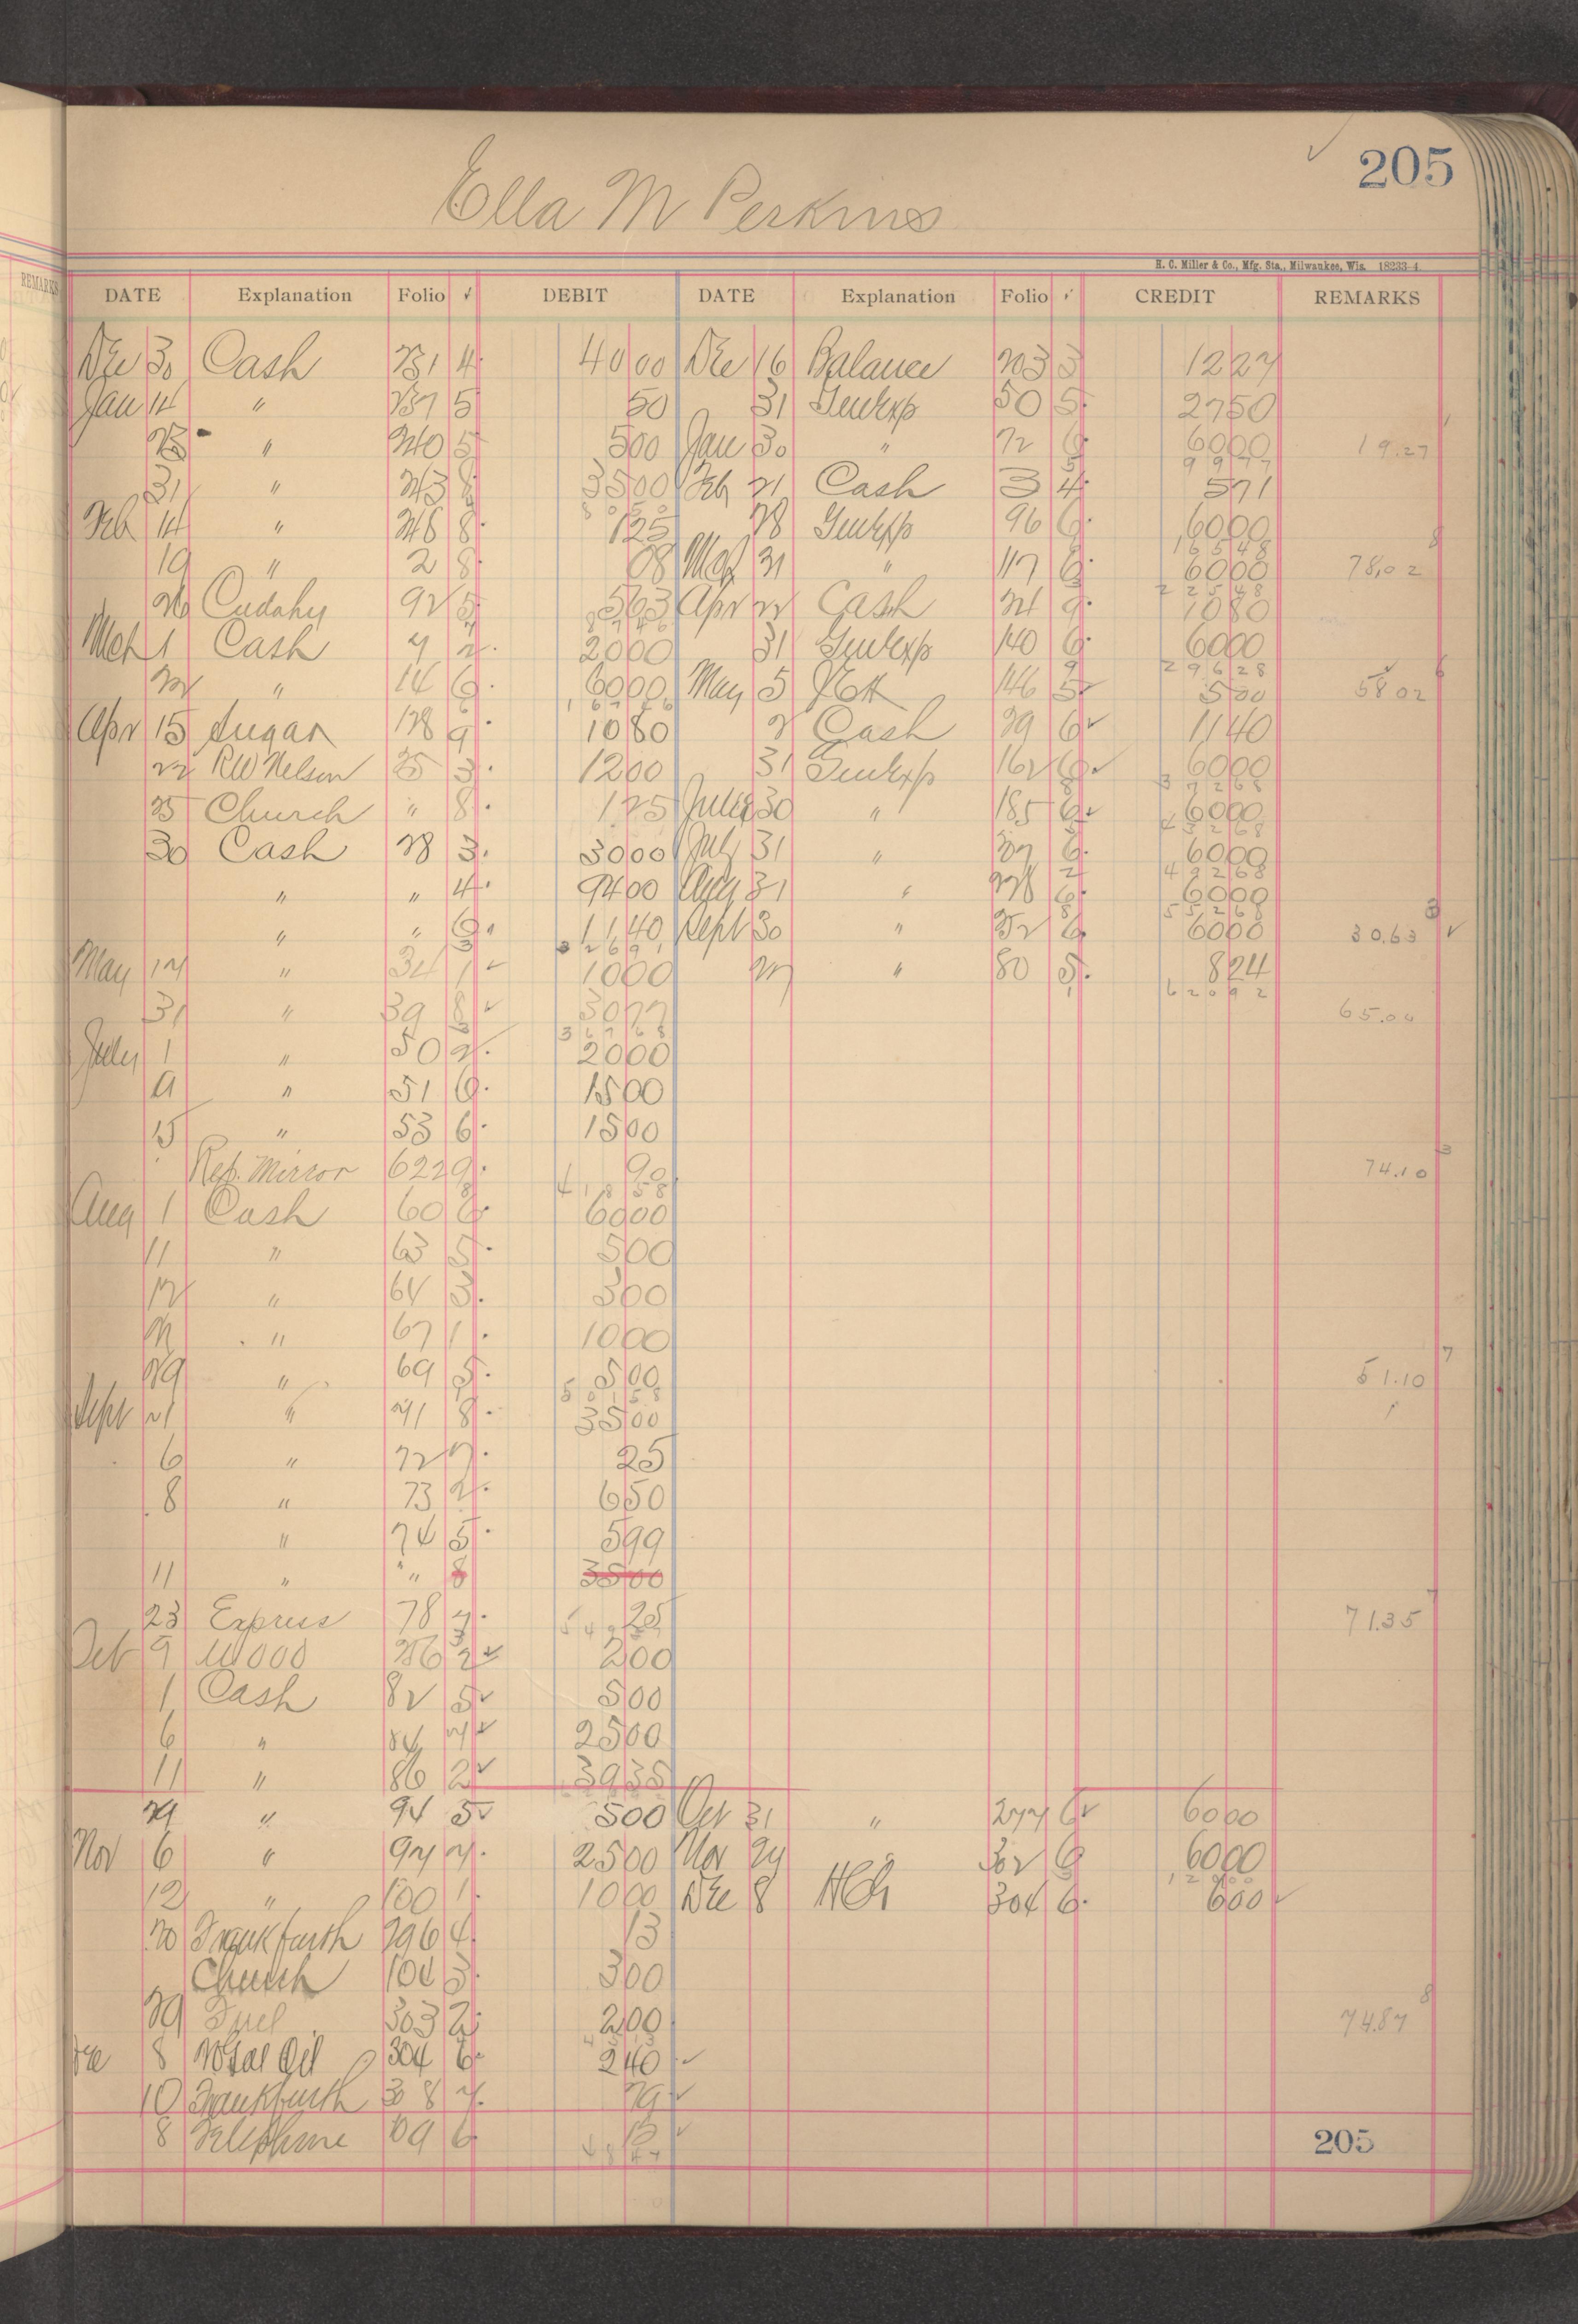 205
Ella M Perkins
H. C. Miller & Co., Mfg. Sta., Milwaukee, Wis. 18233-4
REMARKS
DATE Explanation Folio ✓ DEBIT DATE Explanation Folio ✓ CREDIT REMARKS
Dec 30 Cash 231 4 4000 Dec 16 Balance 203 3 1227
Jan 14 " 237 5 50 31 GenExp 50 5 2750
" 240 5 500 Jan 30 " 72 6 6000 19.27
9977
31 " 243 8 3500 Feb 21 Cash 3 4 571
Feb 14 " 246 8 125 28 GenExp 96 6 6000
16548
19 " 2 8 08 Mch 31 " 117 6 6000 78.02
22548
26 Cudahy 92 5 563 Apr 22 Cash 24 9 1080
Mch 1 Cash 7 2 2000 31 GenExp 140 6 6000
29628
22 " 14 6 6000 May 5 146 5 500 58 02
Apr 15 Sugar 128 9 1080 2 Cash 29 6 1140
22 RW Nelson 25 3 1200 31 GenExp 162 6 6000
37268
25 Church " 8 125 30 " 185 6 6000
43268
30 Cash 28 3 3000 July 31 " 207 6 6000
49268
" " 4 9400 Aug 31 " 228 6 6000
55268
" " 6 1140 Sept 30 " 252 6 6000 30.63 ✓
32691
May 12 " 34 1 1000 27 " 80 5 824
62092
31 " 39 8 3077 65.04
36768
July 1 " 50 2 2000
9 " 51 6 1500
15 " 53 6 1500
Rep. Mirror 622 9 90 74.10
41858
Aug 1 Cash 60 6 6000
11 " 63 5 500
12 " 64 3 300
" 67 1 1000
29 " 69 5 500 51.10
50158
Sept 1 " 71 8 3500
6 " 72 7 25
8 " 73 2 650
" 74 5 599
11 " " 8 3500
23 Express 78 7 25 71.35
Oct 9 Wood 256 2 200
1 Cash 82 5 500
6 " 84 7 2500
11 " 86 2 3935
29 " 94 5 500 Oct 31 " 277 6 6000
Nov 6 " 97 7 2500 Nov 29 " 302 6 6000
12000
12 " 100 1 1000 Dec 8 304 6 600
20 Frankfurth 296 4 13
Church 104 3 300
29 Fuel 303 2 200 74.87
Dec 8 Oil 304 6 240
10 Frankfurth 308 7 79
8 Telephone 309 6 15
205